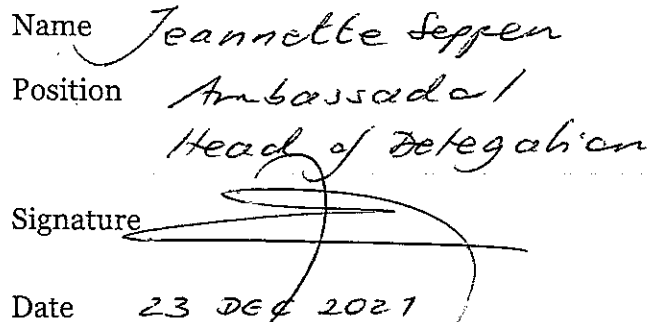 Name Jeannette Seppen
Position Ambassador/
Head of Delegation
Signature
Date 23 DEC 2021